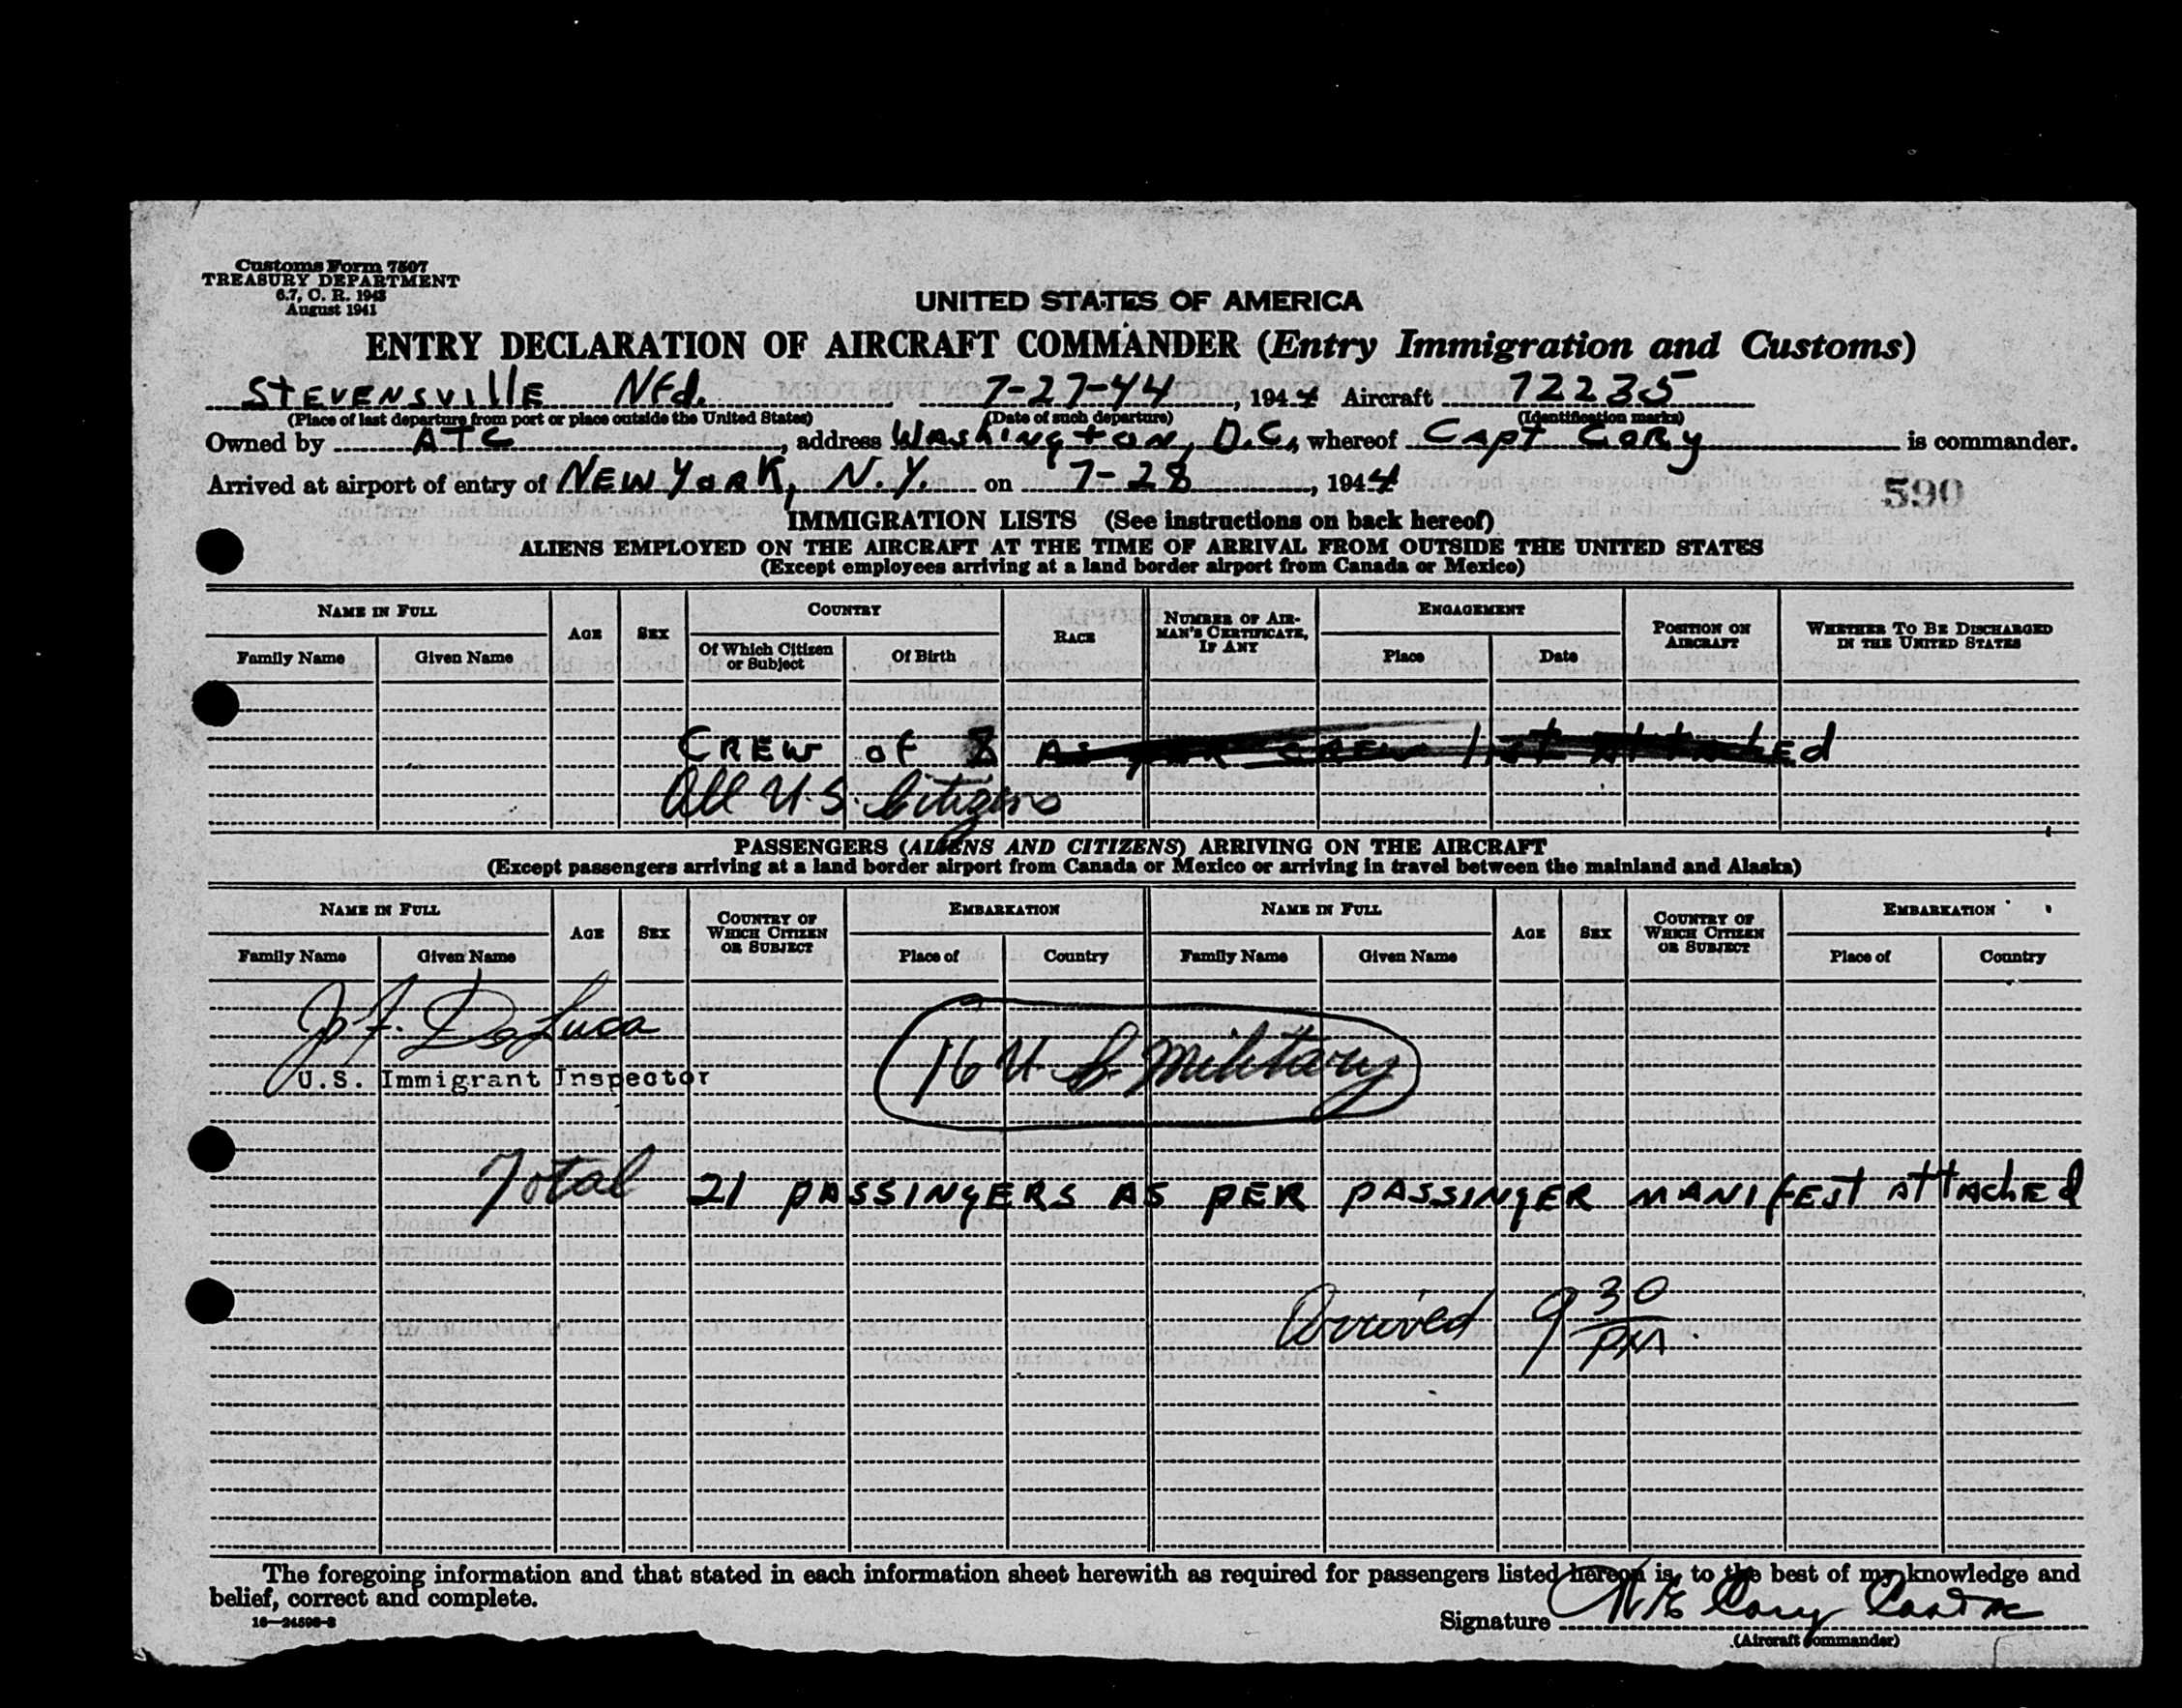 Customs Form 7507
TREASURY DEPARTMENT
6.7, C. R. 1943
August 1941
UNITED STATES OF AMERICA
ENTRY DECLARATION OF AIRCRAFT COMMANDER (Entry Immigration and Customs)
STEVENSVILLE Nfd. 7-27-44, 1944 Aircraft 72235
(Place of last departure from port or place outside the United States) (Date of such departure) (Identification marks)
Owned by ATC, address WASHINGTON, D.C., whereof CAPT CORY is commander.
Arrived at airport of entry of NEW YORK, N.Y. on 7-28, 1944
590
IMMIGRATION LISTS (See instructions on back hereof)
ALIENS EMPLOYED ON THE AIRCRAFT AT THE TIME OF ARRIVAL FROM OUTSIDE THE UNITED STATES
(Except employees arriving at a land border airport from Canada or Mexico)
NAME IN FULL AGE SEX COUNTRY RACE NUMBER OF AIRMAN'S CERTIFICATE, IF ANY ENGAGEMENT POSITION ON AIRCRAFT WHETHER TO BE DISCHARGED IN THE UNITED STATES
Family Name Given Name Of Which Citizen or Subject Of Birth Place Date
CREW of 8 AS PER CREW list AttachEd
All U.S. Citizens
PASSENGERS (ALIENS AND CITIZENS) ARRIVING ON THE AIRCRAFT
(Except passengers arriving at a land border airport from Canada or Mexico or arriving in travel between the mainland and Alaska)
NAME IN FULL AGE SEX COUNTRY OF WHICH CITIZEN OR SUBJECT EMBARKATION NAME IN FULL AGE SEX COUNTRY OF WHICH CITIZEN OR SUBJECT EMBARKATION
Family Name Given Name Place of Country Family Name Given Name Place of Country
J. F. DeLuca
16 U S Military
U.S. Immigrant Inspector
Total 21 PASSINgERS AS PER PASSINgER MANIfEst AttAchEd
Arrived 9 30 PM.
The foregoing information and that stated in each information sheet herewith as required for passengers listed hereon is, to the best of my knowledge and
belief, correct and complete.
16—24590-2
Signature Cory Capt AC
(Aircraft Commander)